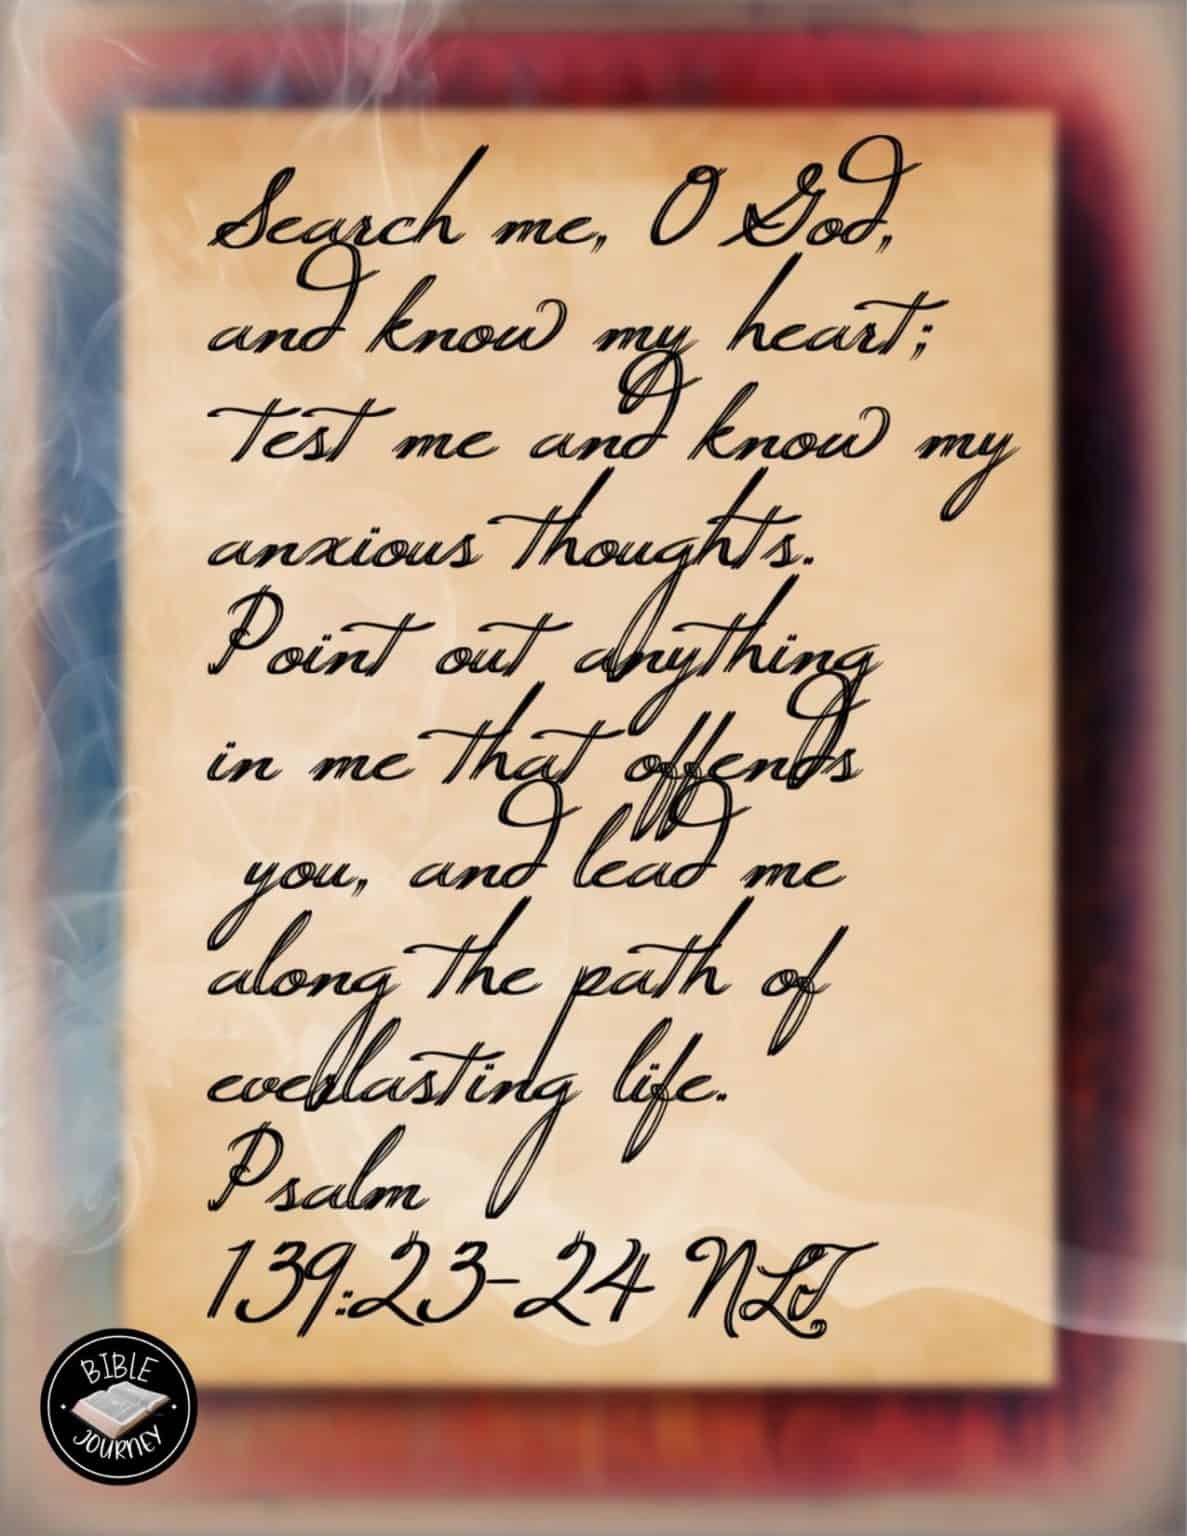 Search me, O God,
and know my heart;
test me and know my
anxious thoughts.
Point out anything
in me that offends
you, and lead me
along the path of
everlasting life.
Psalm
139:23-24 NLT
BIBLE
JOURNEY